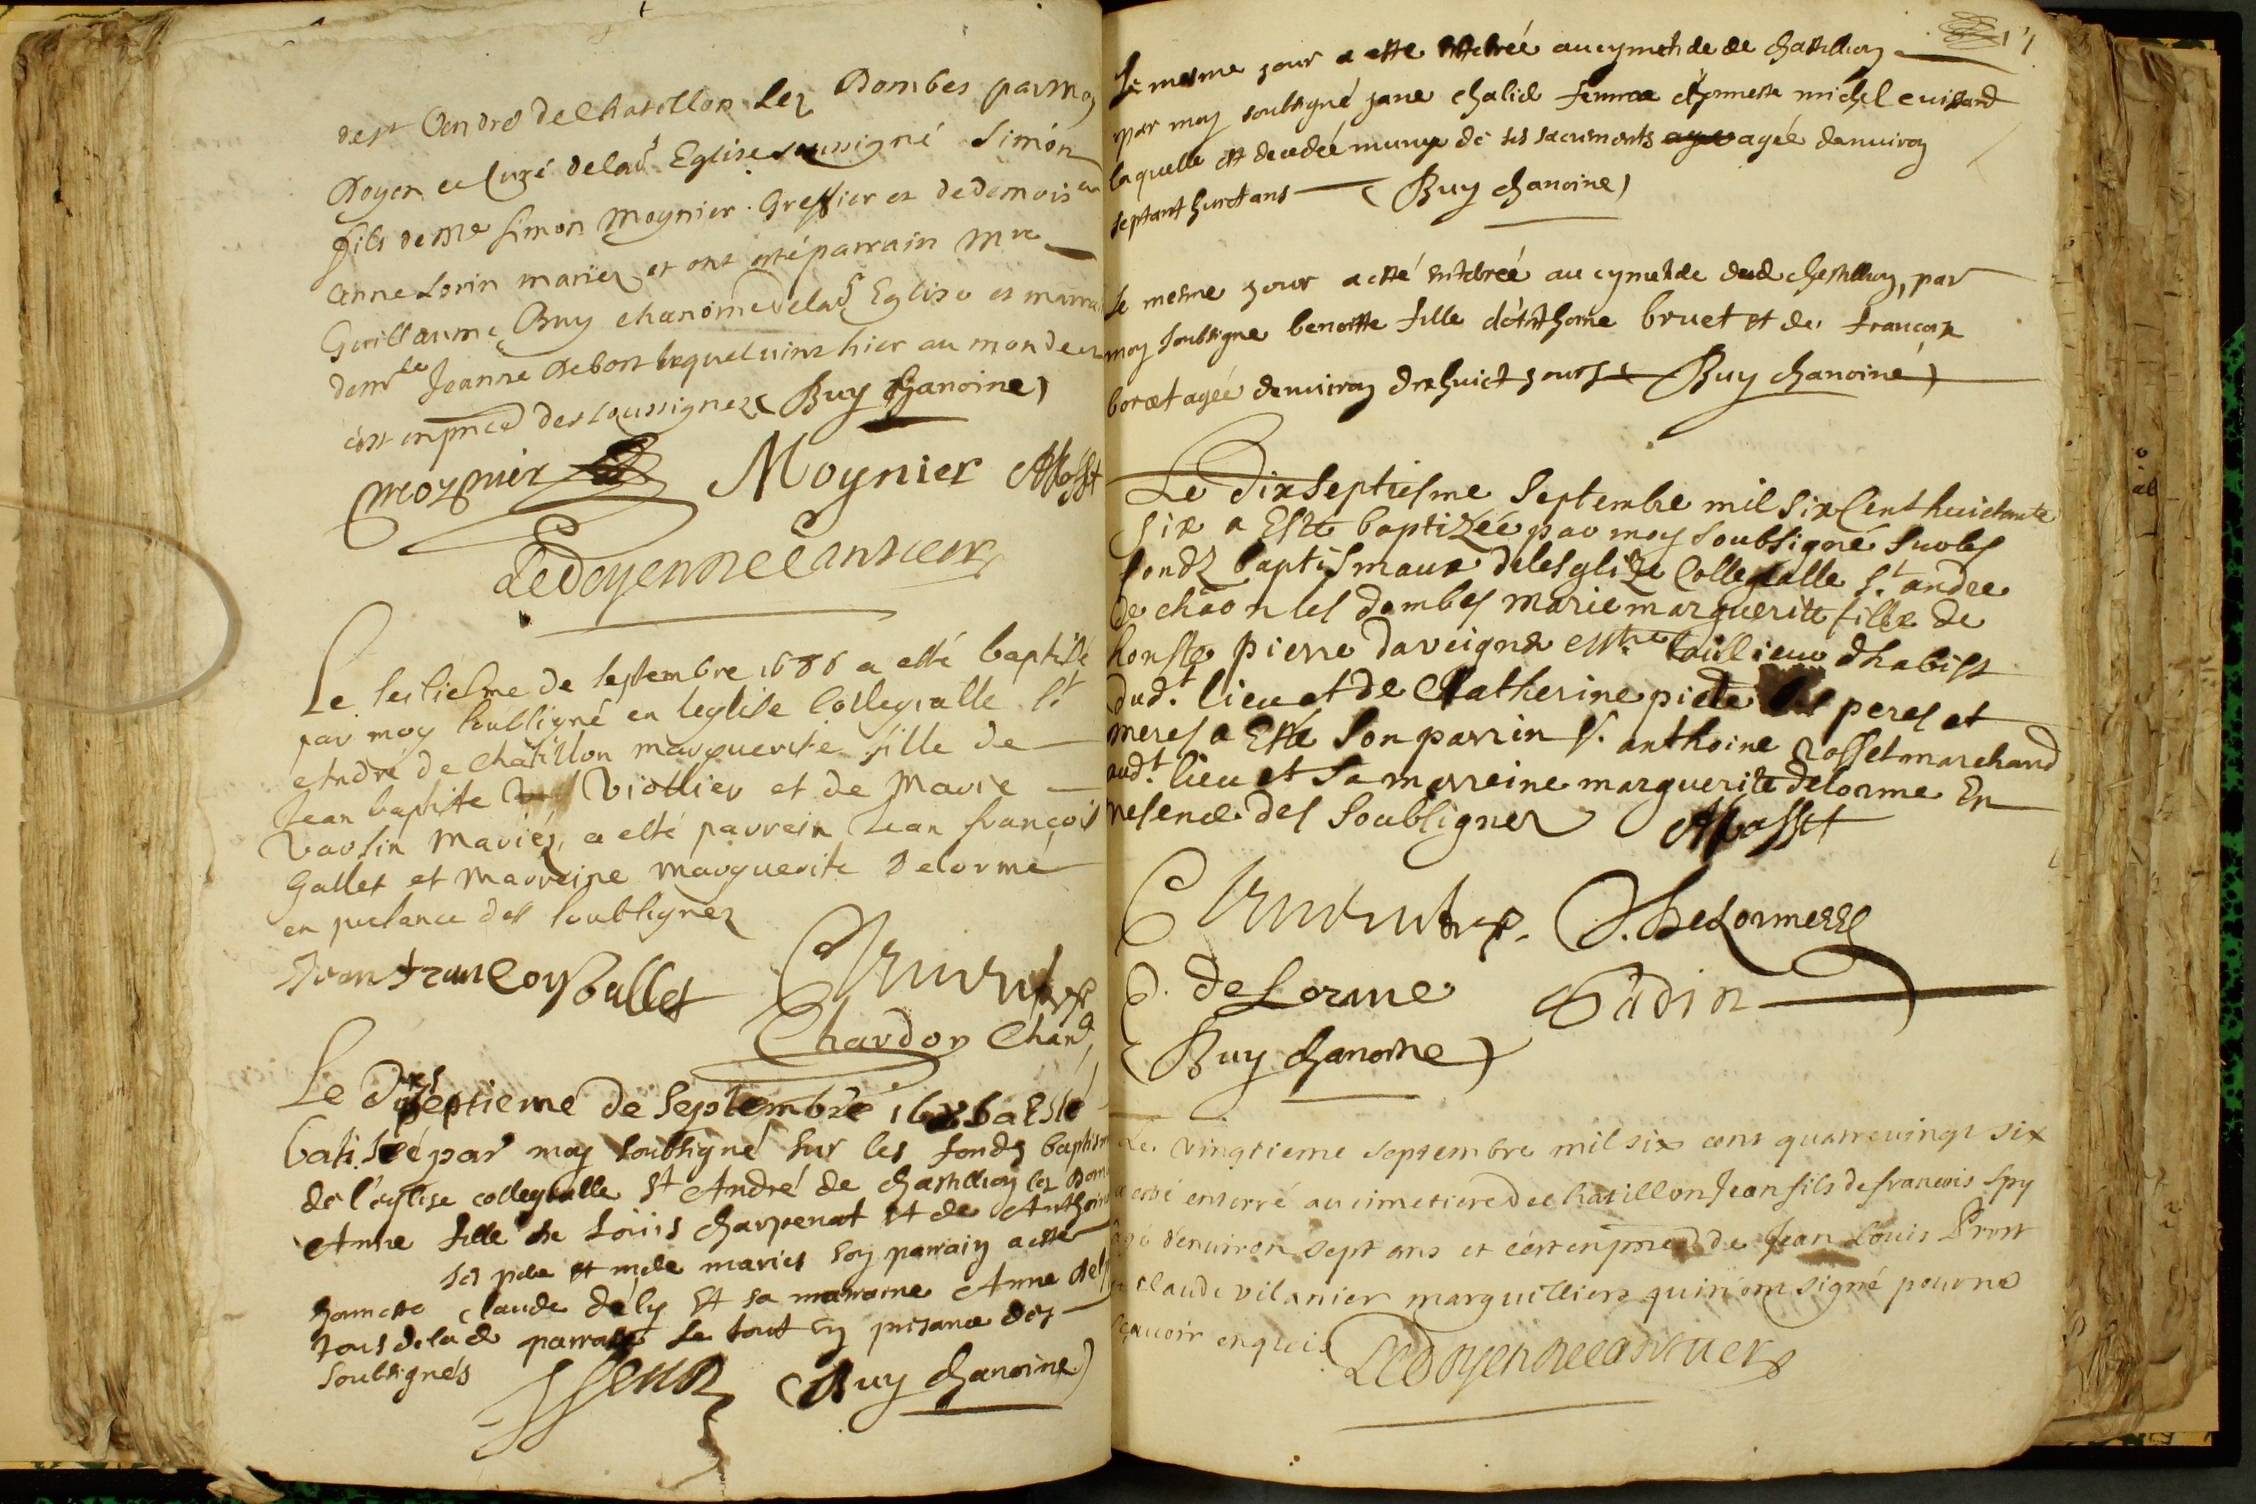 de st André de Chatillon lez Dombes par moy
Doyen et Curé de lad Eglise soussigné Simon
fils de Me Simon Moynier Greffier et de demois
Anne Lorin mariez et ont esté parrain Mre
Guillaume Buy chanoine de lad Eglise et marra
demlle Jeanne Debost lequel vint hier au monde et
c'est en pnce des soussignez Buy chanoine
Moynier Moynier
Le Doyen
Le seiziesme de septembre 1686 a esté baptisé
par moy soubsigné en leglise Collegialle St
André de Chatillon marguerite fille de
Jean baptiste Viollier et de Marie
Varsin Mariés, a esté parrein Jean françois
Gallet et Marreine Marguerite Delorme
en presance des soubsignez
Jean francoys Gallet
Chardon Chane
Le dixseptieme de Septembre 1686 a Esté
batisée par moy soubsigné sur les fonds baptism
de l'eglise collegialle St André de chastillon les Dom
Anne fille de Loüis charpenat et de Anthoin
ses pere et mere mariés son parrain a esté
honneste Claude dély et sa marraine Anne
tous de lad parroisse le tout en presance des
soubsignés
Buy chanoine
Le mesme jour a esté enterée au cymetiere de chastillon
par moy soubsigné jane chalid femme d'honneste michel
laquelle est decedée munye de ses sacrements agée d'enuiron
septant huict ans Buy chanoine
Le mesme jour a esté enterée au cymetiere dud chastillon, par
moy soubsigne benoitte fille d'Anthoine bruet et de francoise
boret agée denuiron dixhuict jours Buy chanoine
Le Dixseptiesme Septembre mil six Cent huictante
six a Esté baptizée par moy soubsigné sur les
fondz baptismaux de lesglize Collegialle St andre
de chaon les dombes marie marguerite fille de
honste pierre daveigne tailieur dhabist
dud.t lieu et de Catherine ses peres et
meres a Esté son parrin Sr anthoine Rosset marchand
dud.t lieu et sa marreine marguerite delorme En
presence des soubsignez ARosset
Delorme
De Lorme
Buy chanoine
Le vingtieme septembre mil six cens quatrevingt six
a esté enterré au cimetiere de chatillon Jean fils de francois Spy
agé d'enuiron sept ans et c'est en pnce de Jean Louis Prost
et claude vilanier marguilliers qui n'ont signé pour ne
sçauoir enquis
Le Doyen